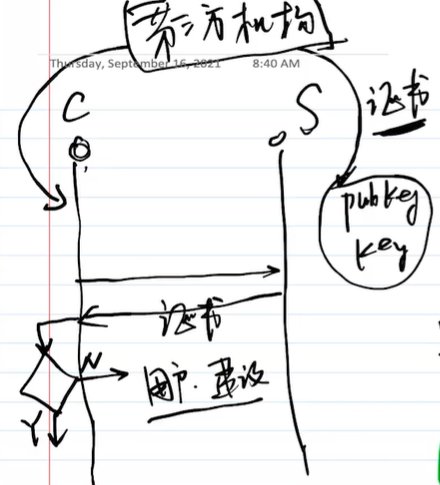 第三方机构
Thursday, September 16, 2021 8:40 AM
C
S
证书
pubkey
key
证书
N
用户.
Y